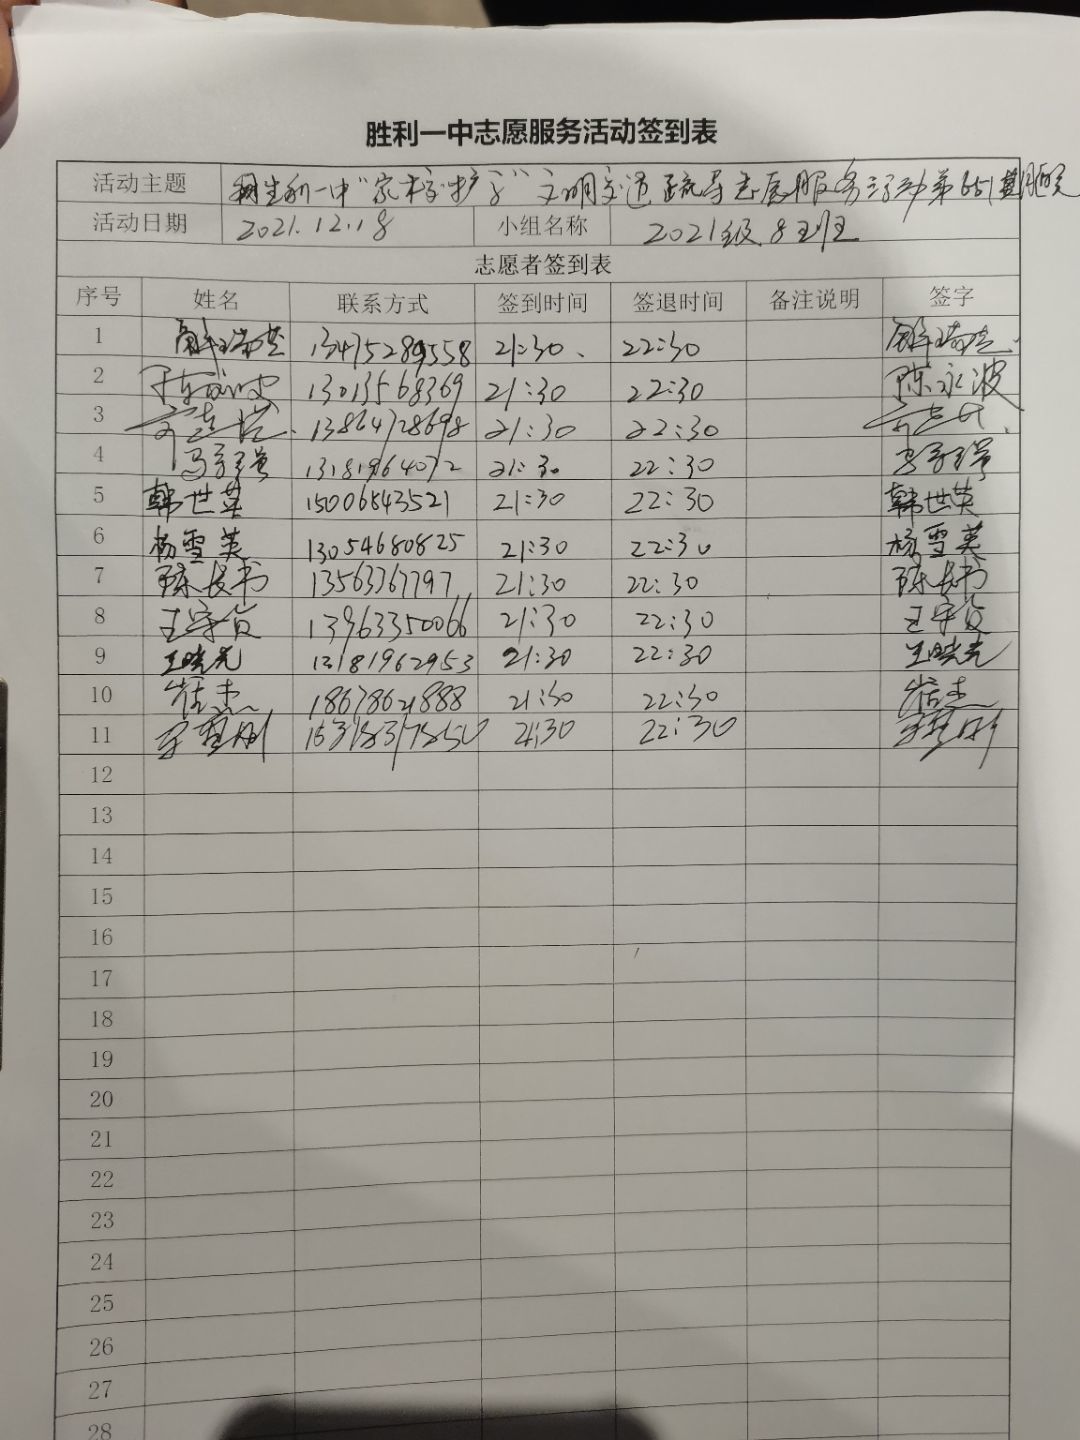 胜利一中志愿服务活动签到表
活动主题 胜利一中"家校护学"文明交通疏导志愿服务活动第651期
活动日期 2021.12.18 小组名称 2021级8班
志愿者签到表
序号 姓名 联系方式 签到时间 签退时间 备注说明 签字
1 13475289558 21:30 22:30
2 陈永波 13013568369 21:30 22:30 陈永波
3 13864728698 21:30 22:30
4 13181964072 21:30 22:30
5 韩世英 15006843521 21:30 22:30 韩世英
6 杨雪英 13054680825 21:30 22:30 杨雪英
7 陈长书 13563367797 21:30 22:30 陈长书
8 13963350066 21:30 22:30
9 王晓光 13181962953 21:30 22:30 王晓光
10 崔杰 18678621888 21:30 22:30 崔杰
11 21:30 22:30
12
13
14
15
16
17
18
19
20
21
22
23
24
25
26
27
28